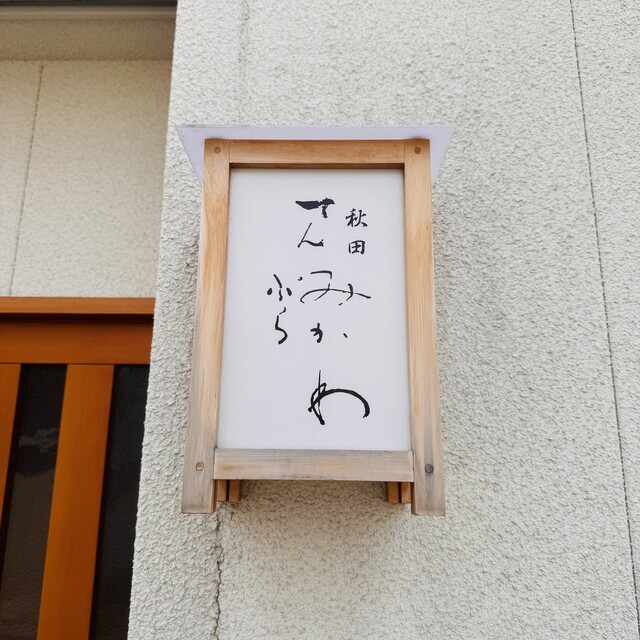 秋田
てん
ぷら
みかわ